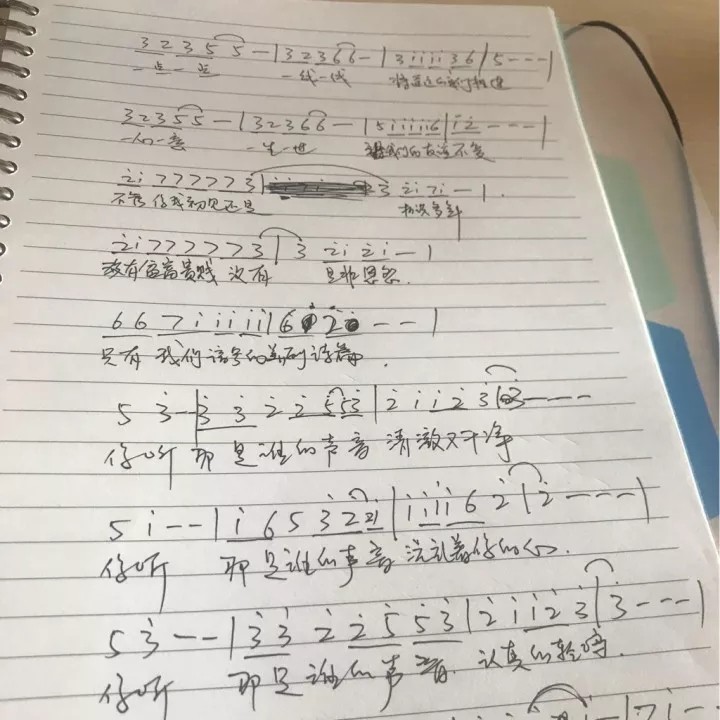 3 2 3 5 5 - | 3 2 3 6 6 - | 3 i i i i 3 6 | 5 - - - |
一点一点 一线一线
3 2 3 5 5 - | 3 2 3 6 6 - | 5 i i i i 6 | i 2 - - - |
一心一意 一生一世 我们的友谊不变
2 i 7 7 7 7 7 3 | 2 3 2 i 7 i - |
不管你我初见还是 相识多年
2 i 7 7 7 7 7 3 | 3 2 i 2 i - |
没有富贵贫贱 没有 是非恩怨.
6 6 7 i i i i i | 6 2 - - |
只有 我们 的 诗篇.
5 3 - - | 3 3 2 2 5 5 3 | 2 i i 2 3 | 3 - - - -
你听 那是谁的声音 清澈又干净
5 i - - | i 6 5 3 2 2 i | i i i i 6 2 | 2 - - - |
你听 那是谁的声音 洗礼着你的心.
5 3 - - | 3 3 2 2 5 5 3 | 2 i i 2 3 | 3 - - - |
你听 那是谁的声音 认真的聆听.
| 7 i -